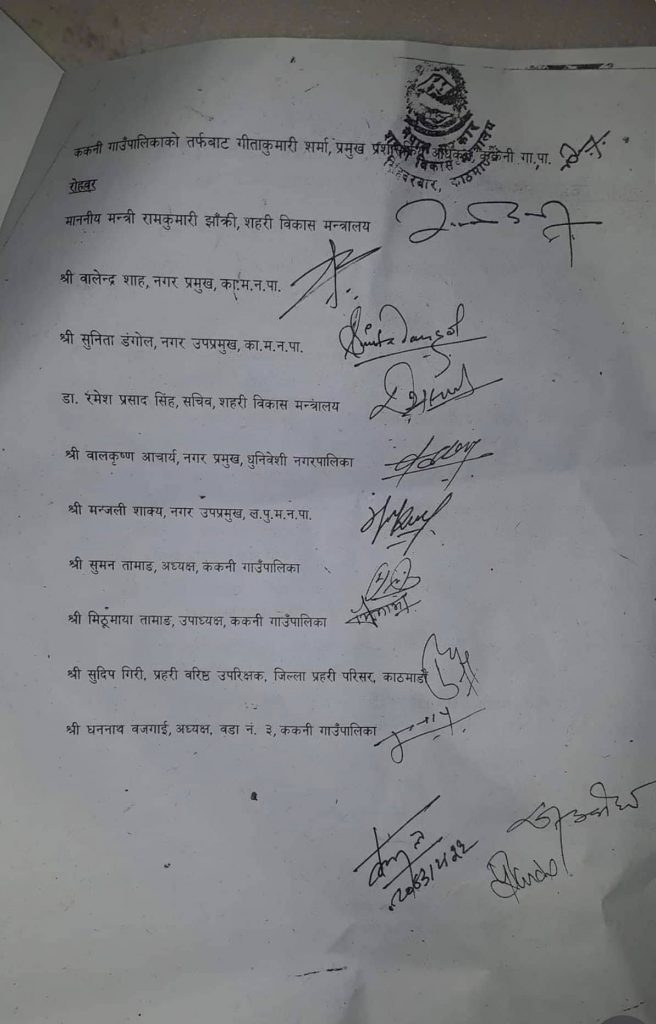 ककनी गाउँपालिकाको तर्फबाट गीताकुमारी शर्मा, प्रमुख प्रशासकीय अधिकृत, ककनी गा.पा.
नेपाल सरकार
शहरी विकास मन्त्रालय
सिंहदरबार, काठमाडौं
रोहवर
माननीय मन्त्री रामकुमारी झाँक्री, शहरी विकास मन्त्रालय
श्री वालेन्द्र शाह, नगर प्रमुख, का.म.न.पा.
श्री सुनिता डंगोल, नगर उपप्रमुख, का.म.न.पा. Sunita Dangol
डा. रमेश प्रसाद सिंह, सचिव, शहरी विकास मन्त्रालय
श्री वालकृष्ण आचार्य, नगर प्रमुख, धुनिवेशी नगरपालिका
श्री मन्जली शाक्य, नगर उपप्रमुख, ल.पु.म.न.पा.
श्री सुमन तामाङ, अध्यक्ष, ककनी गाउँपालिका
श्री मिठूमाया तामाङ, उपाध्यक्ष, ककनी गाउँपालिका
श्री सुदिप गिरी, प्रहरी वरिष्ठ उपरिक्षक, जिल्ला प्रहरी परिसर, काठमाडौं
श्री घननाथ वजगाई, अध्यक्ष, वडा नं. ३, ककनी गाउँपालिका